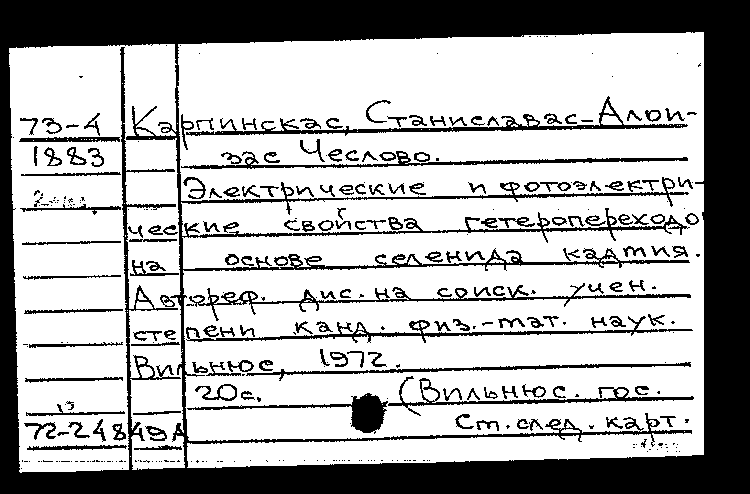 73-4 Карпинскас, Станиславас-Алои-
1883 зас Чеслово.
Электрические и фотоэлектри-
ческие свойства гетеропереходо
на основе селенида кадмия.
Автореф. дис. на соиск. учен.
степени канд. физ.-мат. наук.
Вильнюс, 1972.
20с. (Вильнюс. гос.
72-24849А Ст. след. карт.